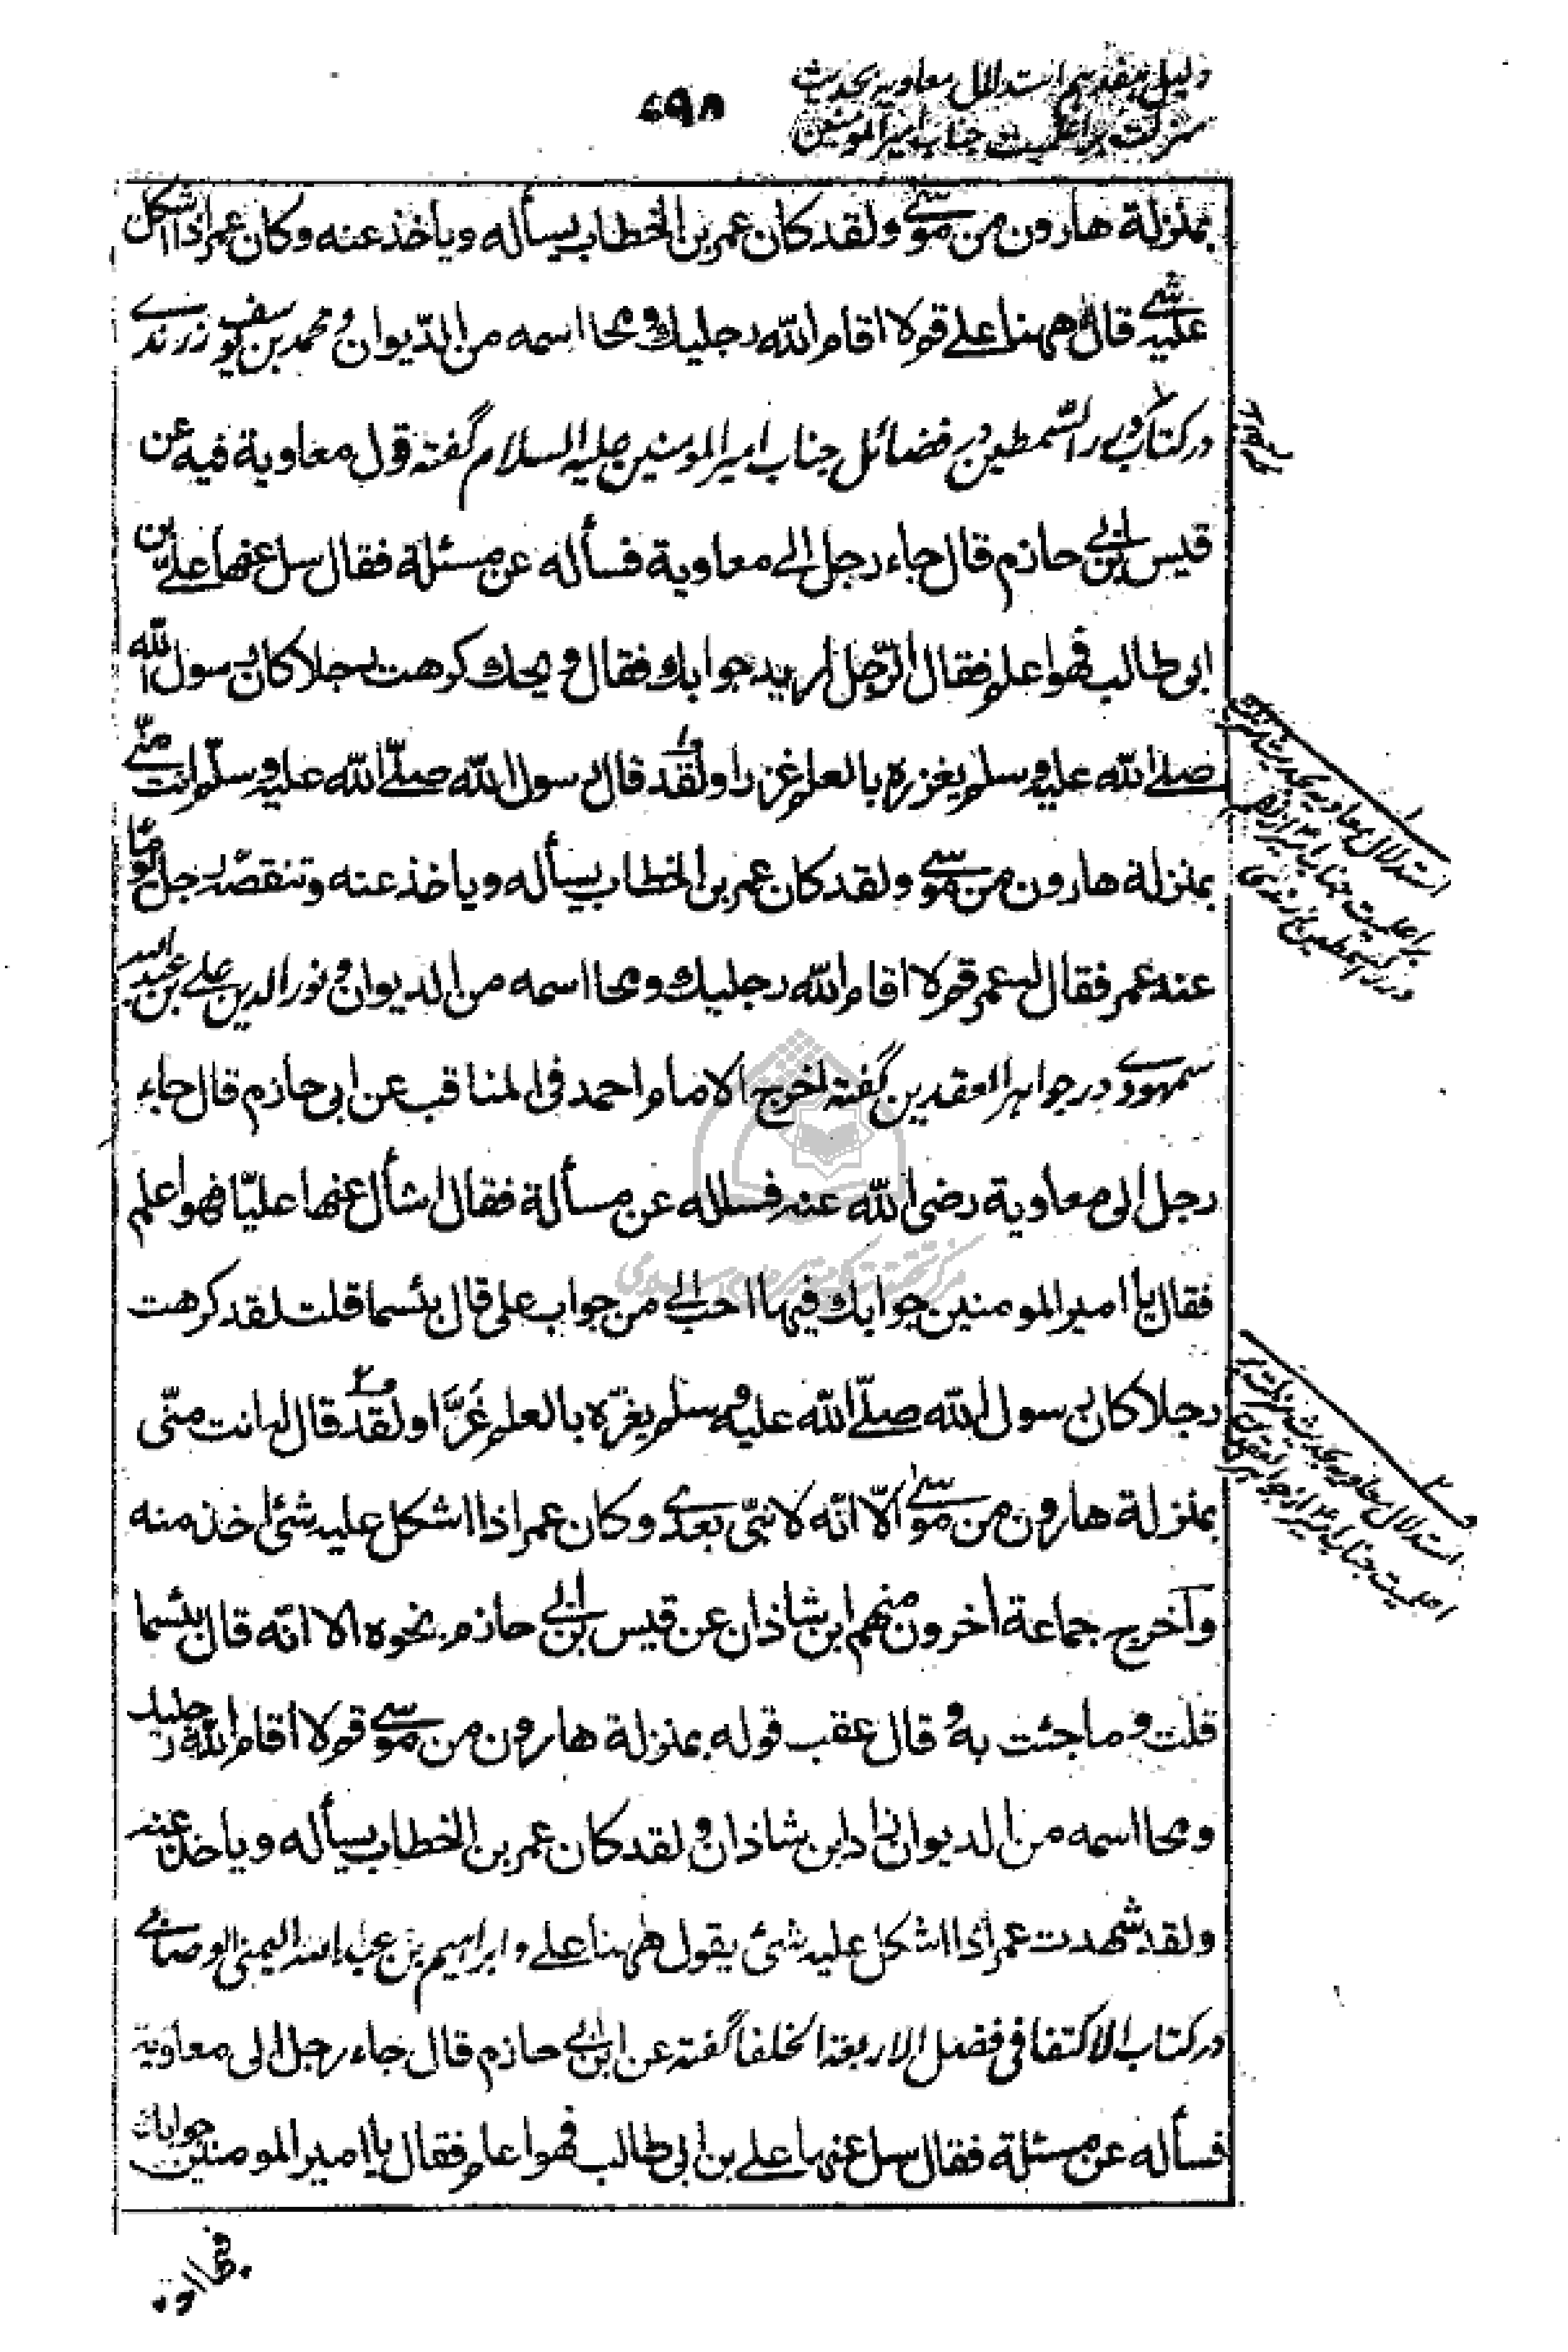 دلیل هفدهم استدلال معاویه بحدیث
منزلت بر اعلمیت جناب امیرالمومنین
۶۹۸
بمنزلة هارون من موسی ولقد کان عمر بن الخطاب یسأله ویاخذ عنه وکان عمر اذا اشکل
علیه شی قال ههنا علی قم لا اقام الله رجلیك ومحا اسمه من الدیوان و محمد بن یوسف زرندی
در کتاب درر السمطین در فضائل جناب امیرالمومنین علیه السلام گفته قول معاویة فیه عن
قیس بن ابی حازم قال جاء رجل الی معاویة فسأله عن مسئلة فقال سل عنها علی بن
ابی طالب فهو اعلم فقال الرجل ارید جوابك فقال ویحك کرهت رجلا کان رسول الله
صلی الله علیه وسلم یغزره بالعلم غزرا ولقد قال رسول الله صلّی الله علیه وسلّم له انت منّی
بمنزلة هارون من موسی ولقد کان عمر بن الخطاب یسأله ویاخذ عنه وتنقصه رجل
عند عمر فقال له عمر قم لا اقام الله رجلیك ومحا اسمه من الدیوان و نور الدین علی بن عبد الله
سمهودی در جواهر العقدین گفته اخرج الامام احمد فی المناقب عن ابی حازم قال جاء
رجل الی معاویة رضی الله عنه فسأله عن مسألة فقال اسأل عنها علیّا فهو اعلم
فقال یا امیر المومنین جوابك فیها احب الی من جواب علی قال بئسما قلت لقد کرهت
رجلا کان رسول الله صلّی الله علیه وسلم یغرّه بالعلم غَرَّا ولقد قال له انت منّی
بمنزلة هارون من موسی الّا انّه لا نبّی بعدی وکان عمر اذا اشکل علیه شئ اخذ منه
وآخرج جماعة اخرون منهم ابن شاذان عن قیس بن ابی حازم نحوه الا انّه قال بئسما
قلت وما جئت به و قال عقب قوله بمنزلة هارون من موسی قم لا اقام الله رجلیك
ومحا اسمه من الدیوان زاد ابن شاذان و لقد کان عمر بن الخطاب یسأله ویاخذ عنه
ولقد شهدت عمر اذا اشکل علیه شئ یقول ههنا علی و ابراهیم بن عبد الله الیمنی الوصابی
در کتاب الاکتفا فی فضل الاربعة الخلفا گفته عن ابن ابی حازم قال جاء رجل الی معاویة
فسأله عن مسئلة فقال سل عنها علی بن ابی طالب فهو اعلم فقال یا امیر المومنین جوابك
استدلال معاویه بحدیث منزلت
بر اعلمیت جناب امیر از
درر السمطین زرندی
استدلال معاویه بحدیث منزلت بر
اعلمیت جناب امیر از جواهر العقدین